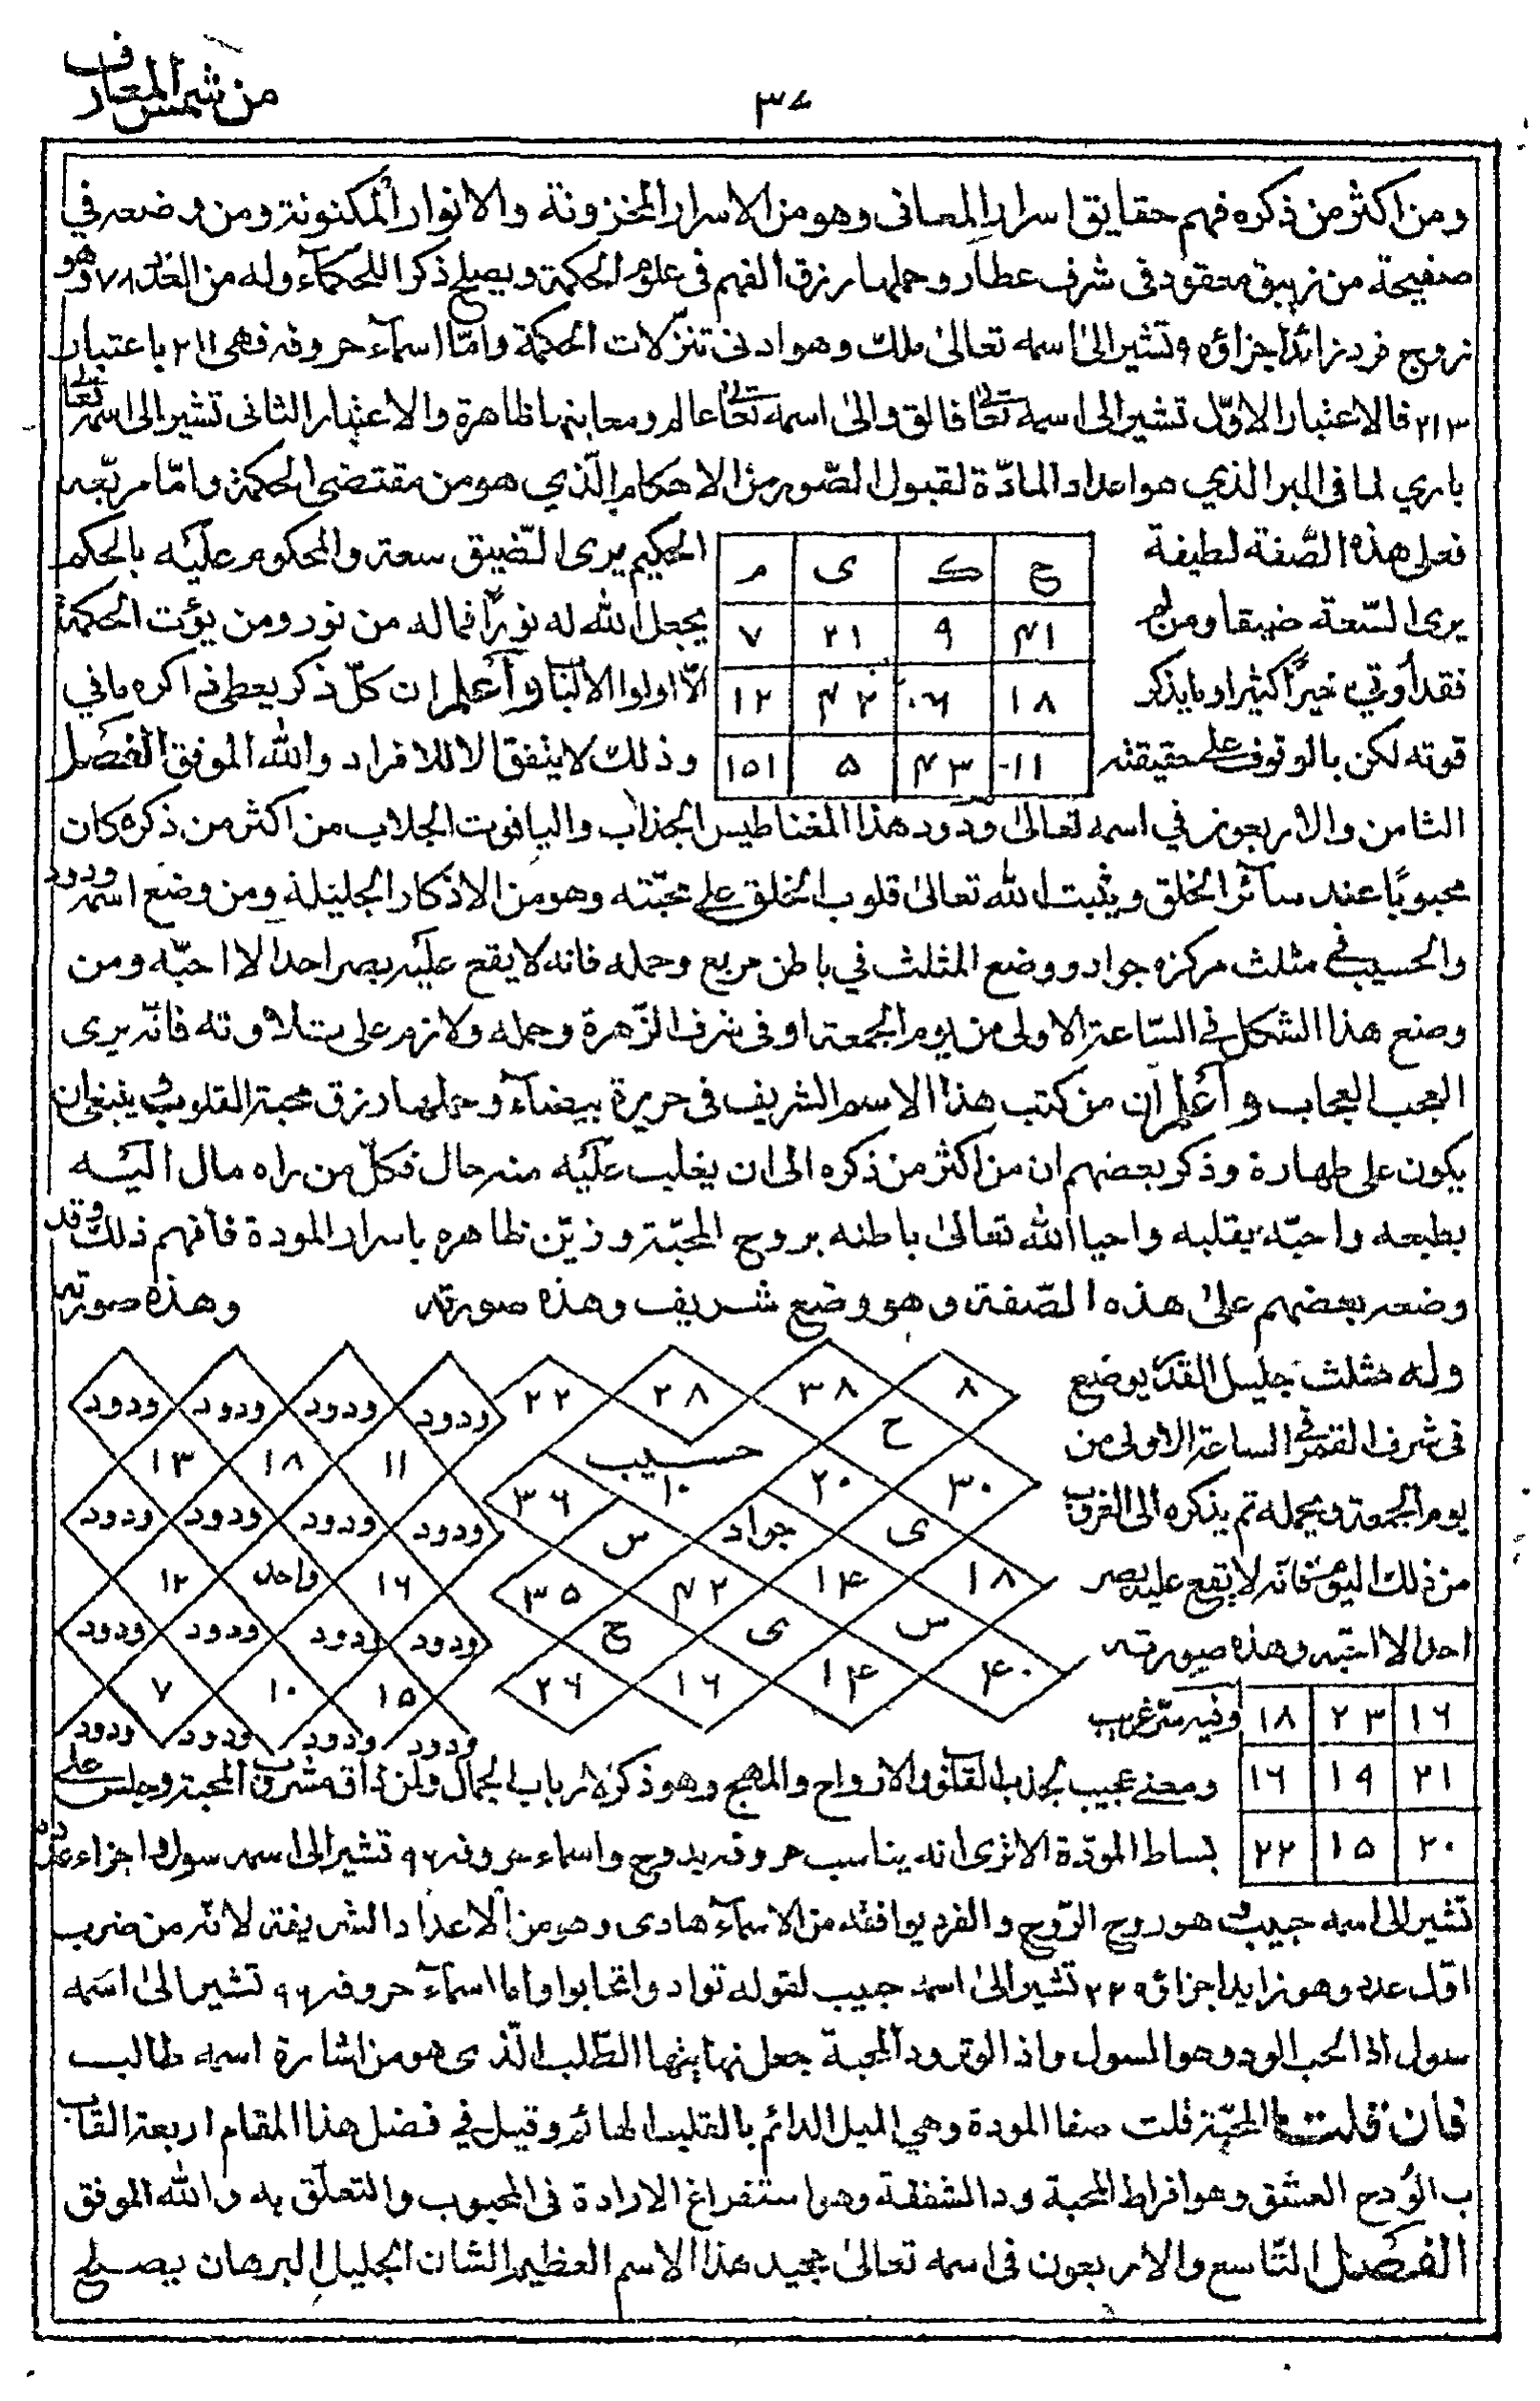 من شمس المعارف
٣٤
ومن اكثر من ذكره فهم حقايق اسرار المعانى وهو من الاسرار المخزونة والانوار المكنونة ومن وضعه في
صفيحة من زيبق معقود فى شرف عطارد وحملها رزق الفهم فى علوم الحكمة ويصلح ذكرا للحكمآء وله من العدد ٧٨ وهو
زوج فرد زائدا جزاؤه وتشير الى اسمه تعالى ملك وهو ادنى تنزلات الحكمة وامّا اسمآء حروفه فهى ٢١١ باعتبار
٢١٣ فالاعتبار الاوّل تشير الى اسمه تعالى فالق والى اسمه تعالى عالم ومعاينها ظاهرة والاعتبار الثانى تشير الى اسمه تعالى
باري لما فى البر الذي هو اعداد المادّة لقبول الصّور من الاحكام الّذي هو من مقتضى الحكمة وامّا مربّعه
فعلى هذه الصّفة لطيفة الحكيم يرى الضّيق سعة والمحكوم عليه بالحكم
يرى السّعة ضيقا ومن لم يجعل الله له نورًا فماله من نور ومن يؤت الحكمة
فقد أوتي خيرًا كثيرا وما يذكر الّا اولوا الالباب وأعلم ان كلّ ذكر يعطى ذاكره ما في
قوته لكن بالوقوف على حقيقته وذلك لا يتفق الا للافراد والله الموفق الفصل
ح ك ى م
٤١ ٩ ٢١ ٧
١٨ ٠٦ ٤٢ ١٢
١١ ٤٣ ٥ ١٥١
الثامن والاربعون في اسمه تعالى ودود هذا المغناطيس الجذاب والياقوت الجلاب من اكثر من ذكره كان
محبوبًا عند سآئر الخلق ويثبت الله تعالى قلوب الخلق على محبّته وهو من الاذكار الجليلة ومن وضع اسمه ودود
والحسيب في مثلث مركزه جواد ووضع المثلث في باطن مربع وحمله فانه لا يقع عليه بصر احد الا احبّه ومن
وصنع هذا الشكل في السّاعة الاولى من يوم الجمعة او فى شرف الزّهرة وحمله ولازم على تلاوته فانّه يرى
العجب العجاب وأعلم أن من كتب هذا الاسم الشريف فى حريرة بيضآء وحملها رزق محبة القلوب ينبغى ان
يكون على طهارة وذكر بعضهم ان من اكثر من ذكره الى ان يغلب عليه منه حال فكلّ من راه مال اليه
بطبعه واحبّه بقلبه واحيا الله تعالى باطنه بروح المحبّة وزيّن ظاهره باسرار المودة فافهم ذلك وقد
وضعه بعضهم على هذه الصّفة وهو وضع شريف وهذه صورته وهذه صورته
وله مثلث جليل القدر يوضع
فى شرف القمر في الساعة الاولى من
يوم الجمعة ويحمله ثم يذكره الى الغروب
من ذلك اليوم فانّه لا يقع عليه بصر
احد الا احبّه وهذه صورته
٨ ٣٨ ٢٨ ٢٢
ح حسيب
٣٠ ٢٠ ١٠ ٣٦
ى جواد س
١٨ ١٤ ٤٢ ٣٥
س ى ح
٤٠ ١٤ ١٦ ٢٦
ودود ودود ودود ودود
١١ ١٨ ١٣
ودود ودود ودود ودود
١٦ واحد ١٢
ودود ودود ودود ودود
١٥ ١٠ ٧
ودود ودود ودود ودود
١٦ ٢٣ ١٨
٢١ ١٩ ١٦
٢٠ ١٥ ٢٢
وفيه سرّ غريب
ومعنى عجيب لجذب القلوب والارواح والمهج وهو ذكر لارباب الجمال ولمن ذاق مشرب المحبة وجلس على
بساط المودّة الا ترى انه يناسب حروفه يدوح واسماء حروفه ٩٦ تشير الى اسمه سول واجزاء عدده
تشير الى اسمه حبيب هو زوج الزّوج والفرد يوافقه من الاسمآء هادى وهو من الاعداد الشريفة لانّه من ضرب
اوّل عدد وهو زايد اجزاؤه ٢٢ تشير الى اسمه حبيب لقوله توادوا تحابوا واما اسمآء حروفه ٩٦ تشير الى اسمه
سول اذا الحب الود وهو المسول واذا المحبة جعل نهايتها الطّلب الّذى هو من اشارة اسمه طالب
فان قلت ما المحبّة قلت صفا المودة وهي الميل الدائم بالقلب الهائم وقيل في فضل هذا المقام اربعة القاب
ب الوُد ح العشق وهو افراط المحبة ود الشفقة وهو استفراغ الارادة فى المحبوب والتعلّق به والله الموفق
الفصل التّاسع والاربعون فى اسمه تعالى مجيد هذا الاسم العظيم الشان الجليل البرهان يصلح